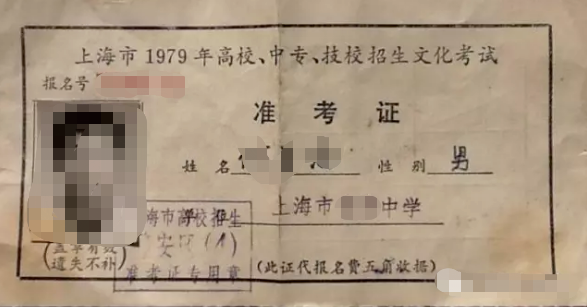 上海市1979年高校、中专、技校招生文化考试
报名号
准考证
姓名 性别 男
上海市 中学
海市高校招生
安区(1)
准考证专用章
(盖章有效
遗失不补)
(此证代报名费五角收据)